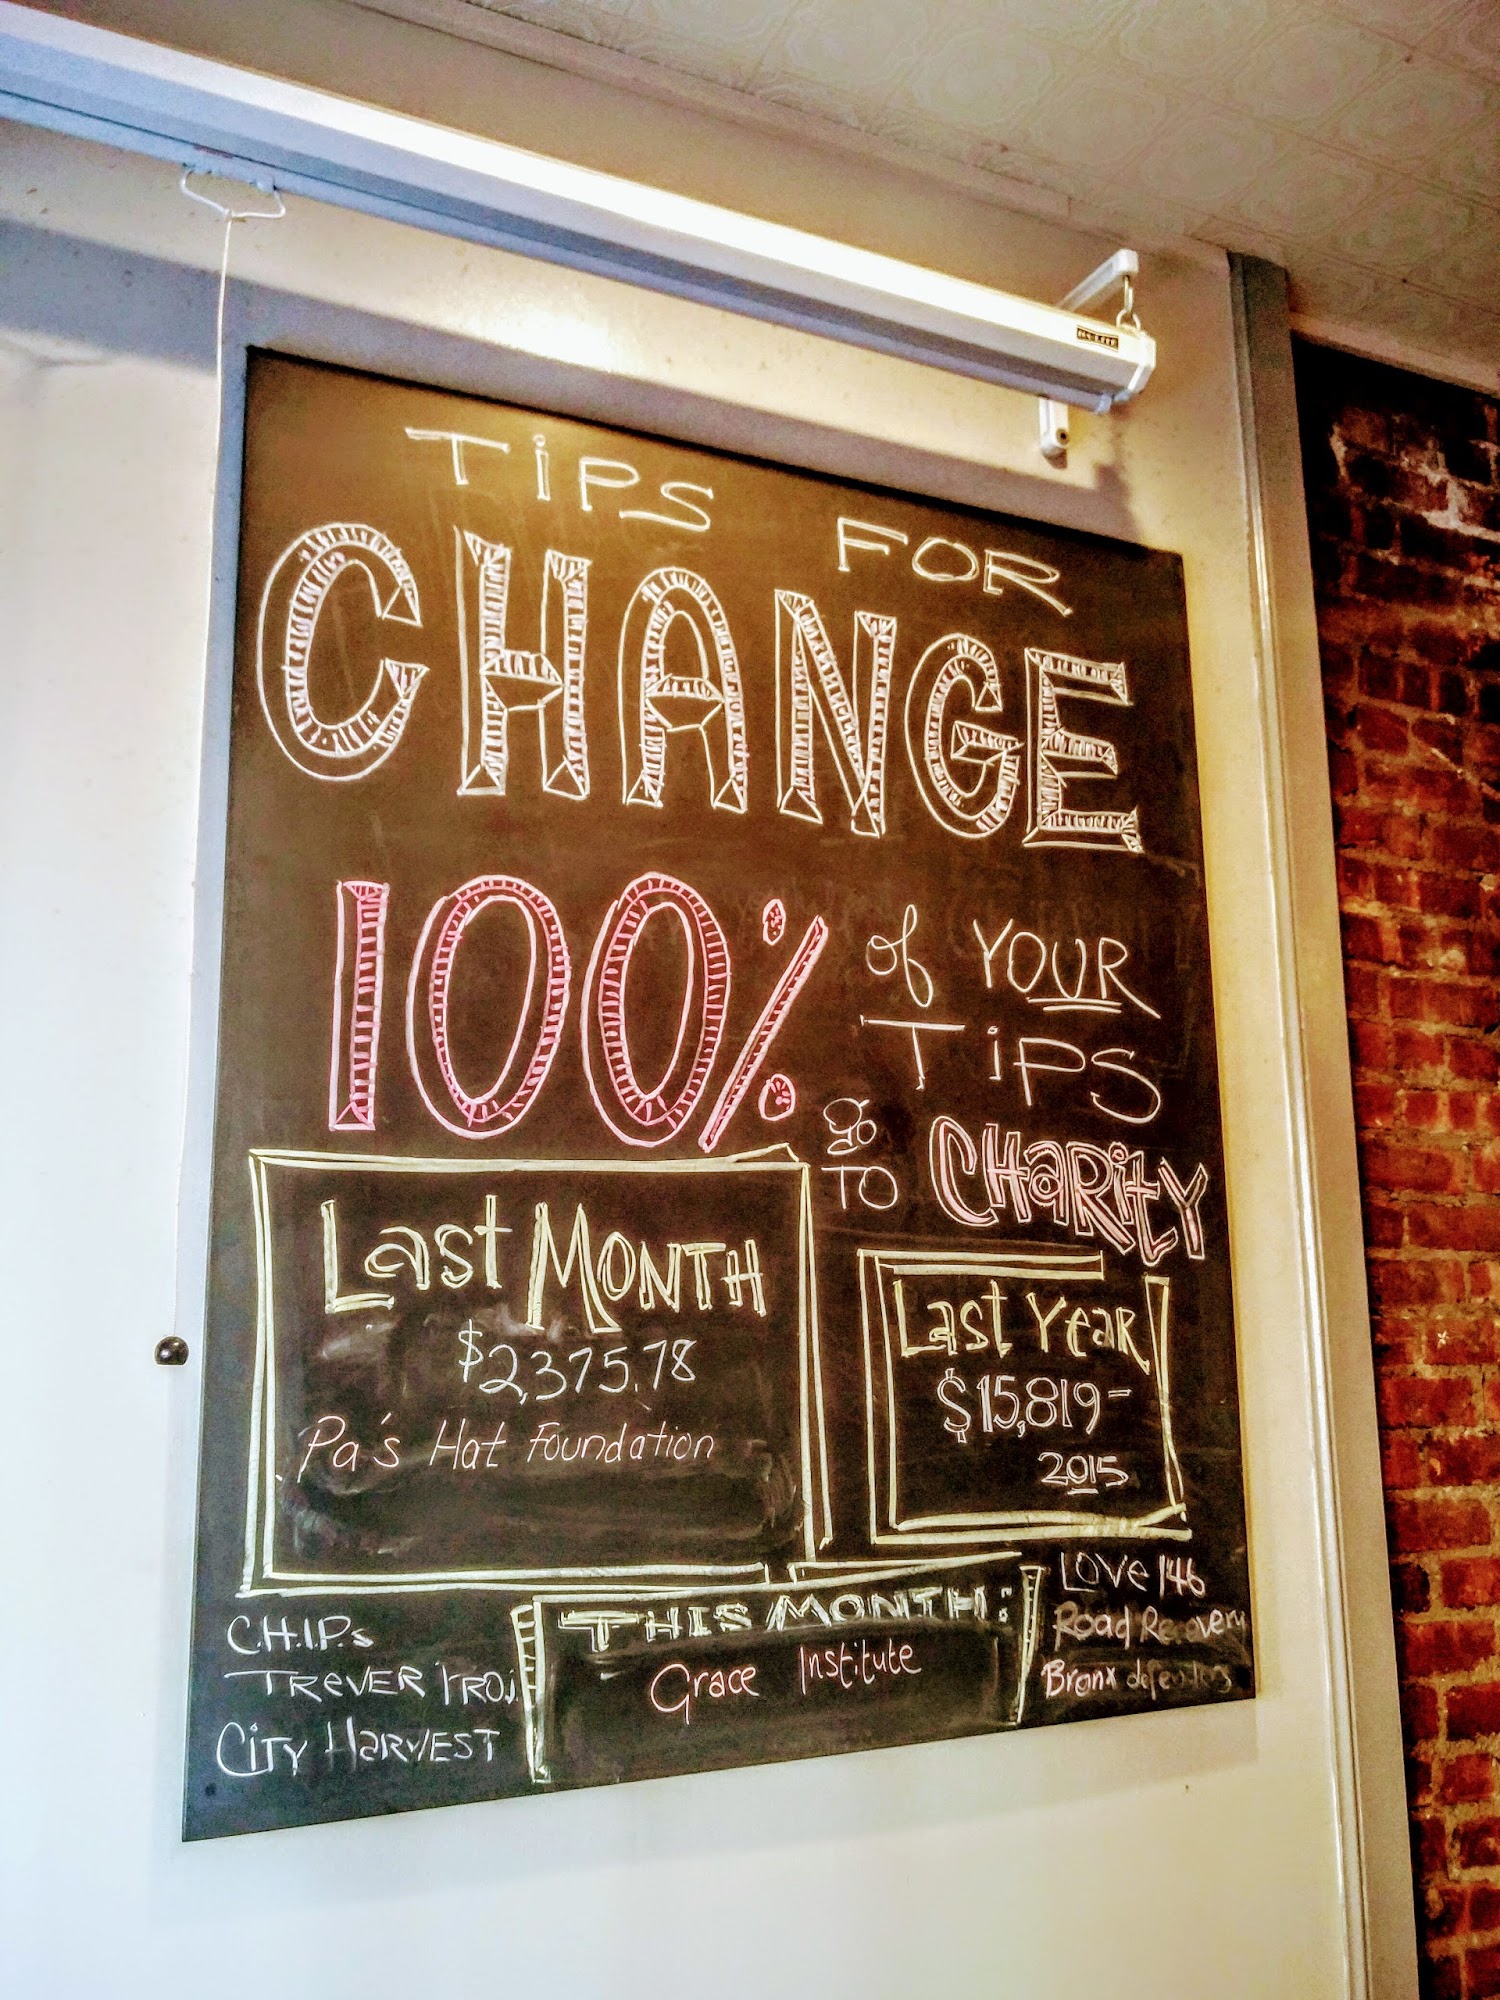 TiPS FOR
CHANGE
100% of YOUR
TiPS
go TO CHARITY
Last MONTH
$2,375.78
Pa's Hat Foundation
Last YEAR
$15,819-
2015
C.H.I.P.s
TREVER
CITY HARVEST
THIS MONTH:
Grace Institute
LOVE 146
Road Recovery
Bronx defenders